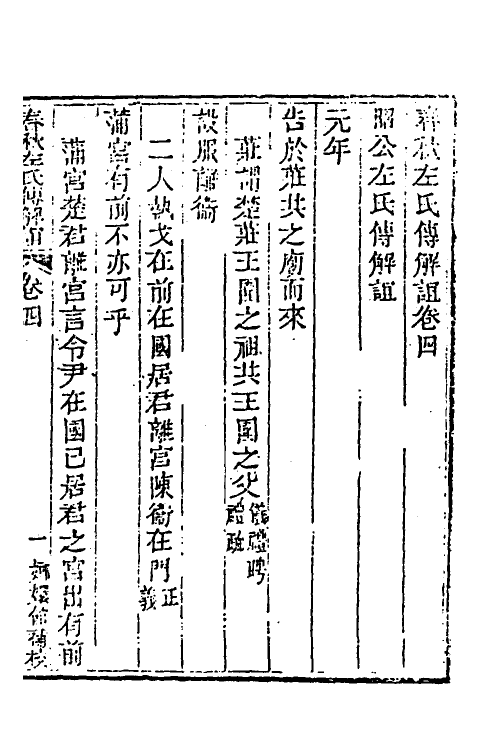 春秋左氏傳解誼卷四
昭公左氏傳解誼
元年
告於莊共之廟而來
莊謂楚莊王圍之祖共王圍之父儀禮聘禮疏
設服離衛
二人執戈在前在國居君離宮陳衞在門正義
蒲宮有前不亦可乎
蒲宮楚君離宮言令尹在國已居君之宮出有前
春秋左氏傳解誼 卷四
一
嫏嬛仙館補校